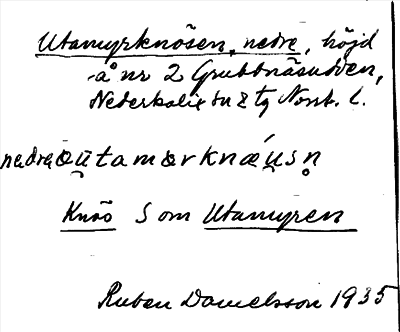 Utamyrknösen, nedre, höjd
å nr 2 Grubbnäsudden,
Nederkalix sn o tg Norrb. l.
nedre ꞷu̯tamørknǽu̯sn̥
Knös S om Utamyren
Ruben Danielsson 1935